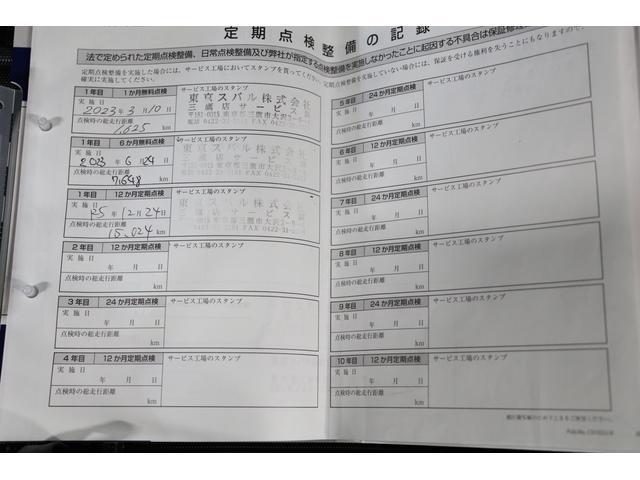 定期点検整備の記録
法で定められた定期点検整備、日常点検整備及び弊社が指定する点検整備を実施しなかったことに起因する不具合は保証修理
定期点検整備を実施した場合には、サービス工場においてスタンプを貰ってください。定期点検整備を実施していない場合には、保証を受ける権利を失うことにもなりますので、
確実に実施してください。
1年目 1か月無料点検 サービス工場のスタンプ
実施日
2023年3月10日
点検時の総走行距離
1,625 km
東京スバル株式会社
三鷹店サービス
〒181-0015 東京都三鷹市大沢
電話 0422-32- FAX 0422-31-
1年目 6か月無料点検 サービス工場のスタンプ
実施日
2023年6月24日
点検時の総走行距離
km
東京スバル株式会社
三鷹店サービス
〒181-0015 東京都三鷹市大沢
1年目 12か月定期点検 サービス工場のスタンプ
実施日
年12月24日
点検時の総走行距離
15,024 km
東京スバル株式会社
三鷹店サービス
〒181-0015 東京都三鷹市大沢
2年目 12か月定期点検 サービス工場のスタンプ
実施日
年 月 日
点検時の総走行距離
km
3年目 24か月定期点検 サービス工場のスタンプ
実施日
年 月 日
点検時の総走行距離
km
4年目 12か月定期点検 サービス工場のスタンプ
実施日
年 月 日
点検時の総走行距離
km
5年目 24か月定期点検 サービス工場のスタンプ
実施日
年 月 日
点検時の総走行距離
km
6年目 12か月定期点検 サービス工場のスタンプ
実施日
年 月 日
点検時の総走行距離
km
7年目 24か月定期点検 サービス工場のスタンプ
実施日
年 月 日
点検時の総走行距離
km
8年目 12か月定期点検 サービス工場のスタンプ
実施日
年 月 日
点検時の総走行距離
km
9年目 24か月定期点検 サービス工場のスタンプ
実施日
年 月 日
点検時の総走行距離
km
10年目 12か月定期点検 サービス工場のスタンプ
実施日
年 月 日
点検時の総走行距離
km